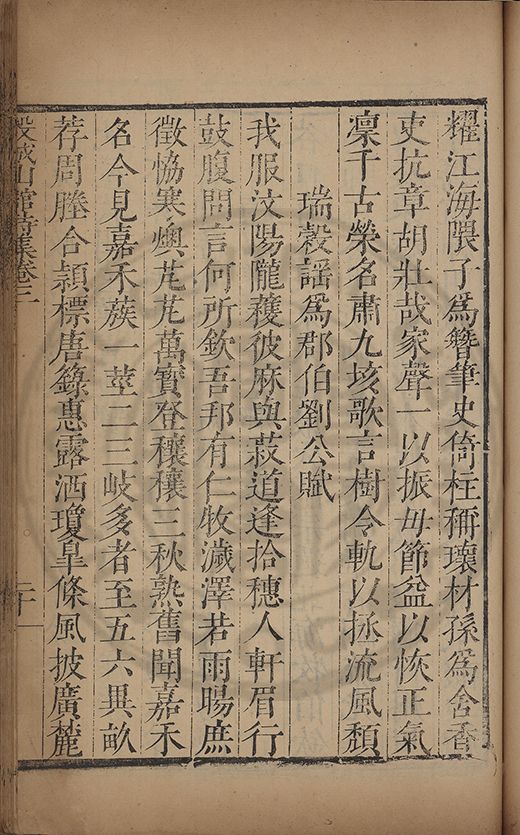 耀江海隈子為簪筆史倚柱稱瓌材孫為含香
吏抗章胡壯哉家聲一以振毋節益以恢正氣
凛千古榮名肅九垓歌言樹令軌以拯流風頹
瑞穀謠為郡伯劉公賦
我服汶陽隴穫彼麻與菽道逢拾穗人軒眉行
鼓腹問言何所欽吾邦有仁牧濊澤若雨暘庶
徵恊寒燠芃芃萬寶登穰穰三秋熟舊聞嘉禾
名今見嘉禾蔟一莖二三岐多者至五六異畝
荐周塍合頴標唐籙惠露洒瓊皐條風披廣麓
穀城山館詩集卷三
二十一